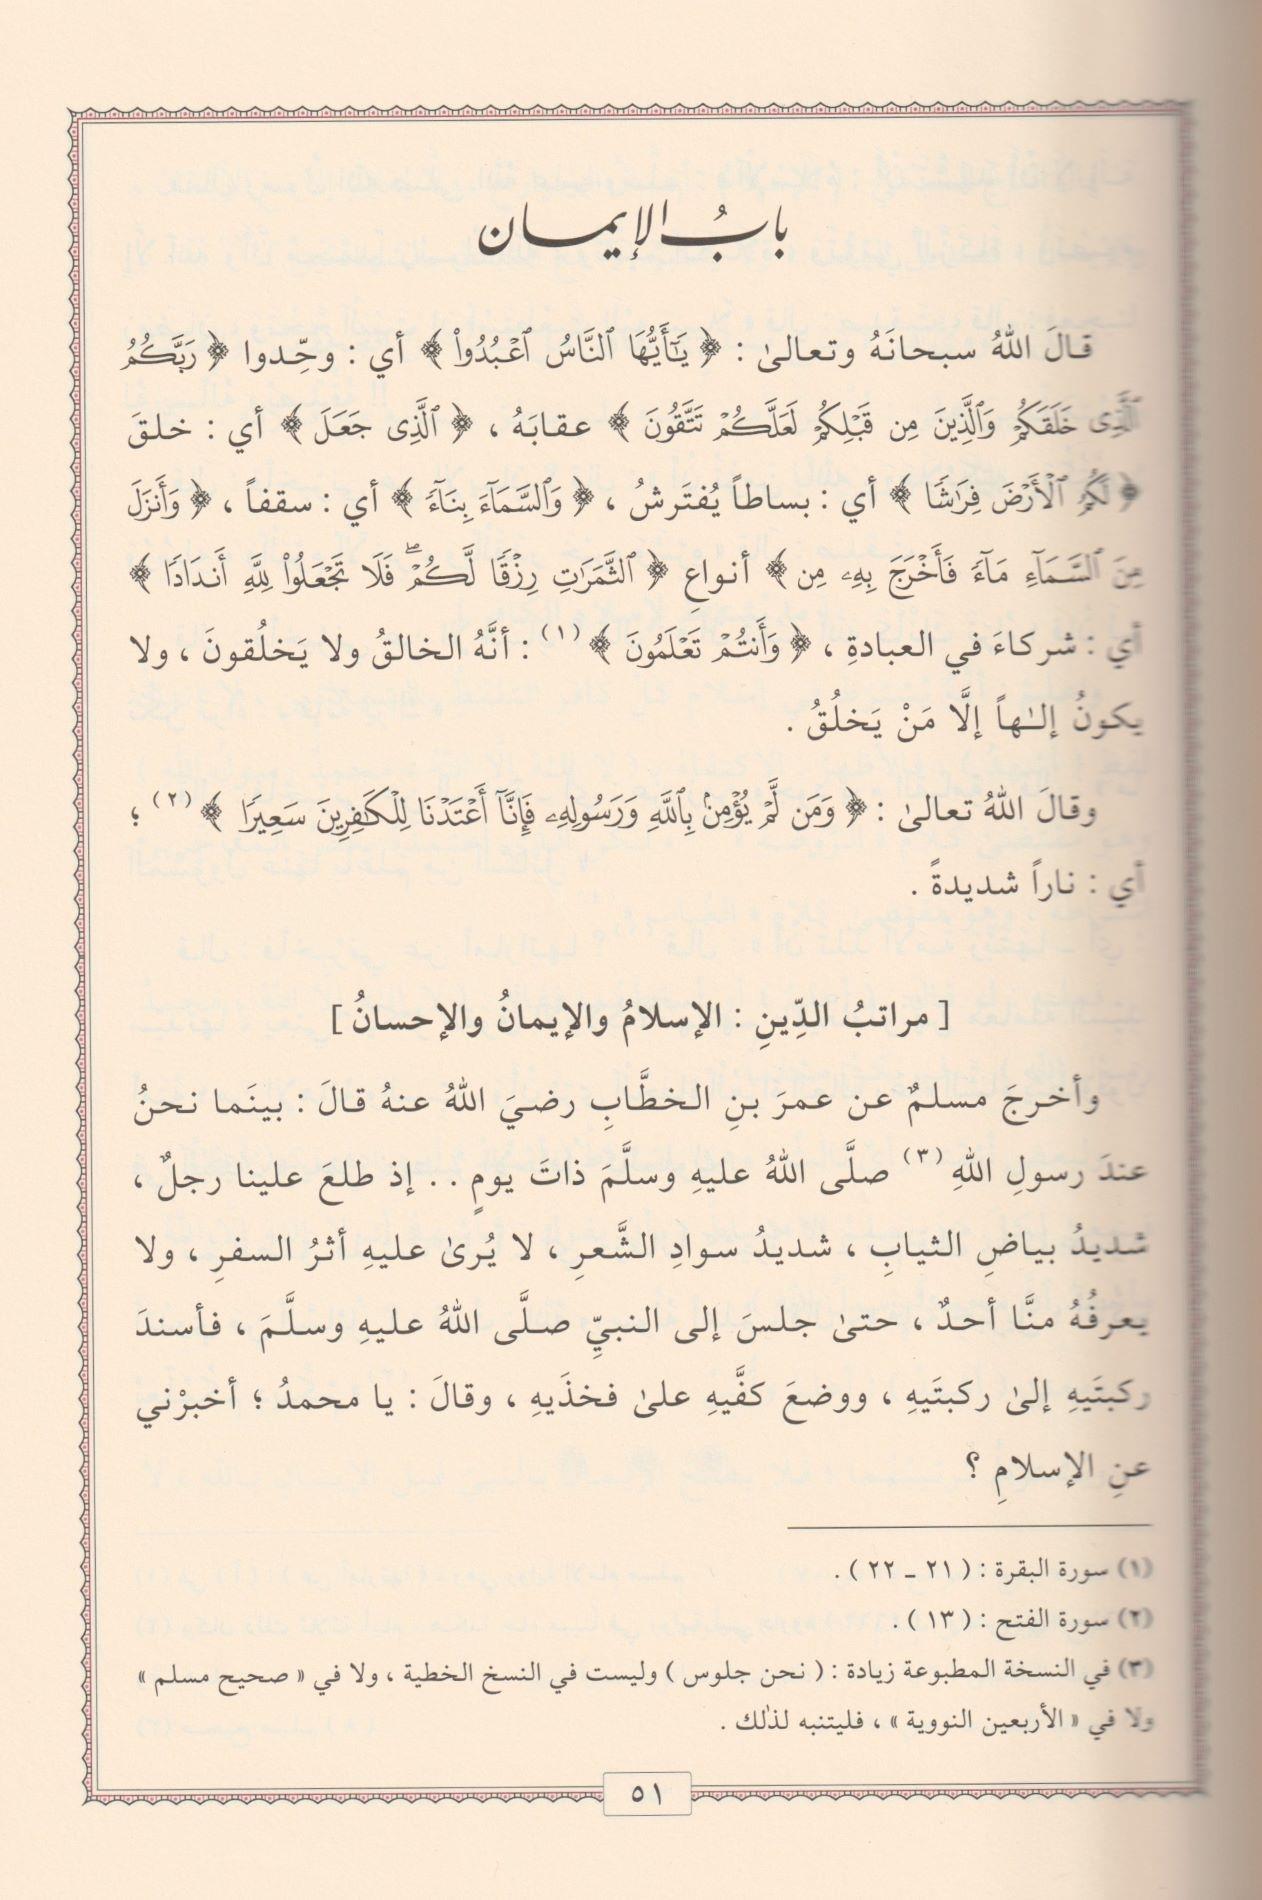 بابُ الإيمان
قالَ اللهُ سبحانَهُ وتعالىٰ : ﴿ يَٰٓأَيُّهَا ٱلنَّاسُ ٱعْبُدُوا۟ ﴾ أي : وحِّدوا ﴿ رَبَّكُمُ
ٱلَّذِى خَلَقَكُمْ وَٱلَّذِينَ مِن قَبْلِكُمْ لَعَلَّكُمْ تَتَّقُونَ ﴾ عقابَهُ ، ﴿ ٱلَّذِى جَعَلَ ﴾ أي : خلقَ
﴿ لَكُمُ ٱلْأَرْضَ فِرَٰشًا ﴾ أي : بساطاً يُفتَرشُ ، ﴿ وَٱلسَّمَآءَ بِنَآءً ﴾ أي : سقفاً ، ﴿ وَأَنزَلَ
مِنَ ٱلسَّمَآءِ مَآءً فَأَخْرَجَ بِهِۦ مِن ﴾ أنواعِ ﴿ ٱلثَّمَرَٰتِ رِزْقًا لَّكُمْ ۖ فَلَا تَجْعَلُوا۟ لِلَّهِ أَندَادًا ﴾
أي : شركاءَ في العبادةِ ، ﴿ وَأَنتُمْ تَعْلَمُونَ ﴾ (١) : أنَّهُ الخالقُ ولا يَخلُقونَ ، ولا
يكونُ إلـٰهاً إلَّا مَنْ يَخلُقُ .
وقالَ اللهُ تعالىٰ : ﴿ وَمَن لَّمْ يُؤْمِنۢ بِٱللَّهِ وَرَسُولِهِۦ فَإِنَّآ أَعْتَدْنَا لِلْكَٰفِرِينَ سَعِيرًا ﴾ (٢) ؛
أي : ناراً شديدةً .
[ مراتبُ الدِّينِ : الإسلامُ والإيمانُ والإحسانُ ]
وأخرجَ مسلمٌ عن عمرَ بنِ الخطَّابِ رضيَ اللهُ عنهُ قالَ : بينَما نحنُ
عندَ رسولِ اللهِ (٣) صلَّى اللهُ عليهِ وسلَّمَ ذاتَ يومٍ . . إذ طلعَ علينا رجلٌ ،
شديدُ بياضِ الثيابِ ، شديدُ سوادِ الشَّعرِ ، لا يُرىٰ عليهِ أثرُ السفرِ ، ولا
يعرفُهُ منَّا أحدٌ ، حتىٰ جلسَ إلى النبيِّ صلَّى اللهُ عليهِ وسلَّمَ ، فأسندَ
ركبتَيهِ إلىٰ ركبتَيهِ ، ووضعَ كفَّيهِ علىٰ فخذَيهِ ، وقالَ : يا محمدُ ؛ أخبرْني
عنِ الإسلامِ ؟
(١) سورة البقرة : ( ٢١ ـ ٢٢ ) .
(٢) سورة الفتح : ( ١٣ ) .
(٣) في النسخة المطبوعة زيادة : ( نحن جلوس ) وليست في النسخ الخطية ، ولا في « صحيح مسلم »
ولا في « الأربعين النووية » ، فليتنبه لذٰلك .
٥١